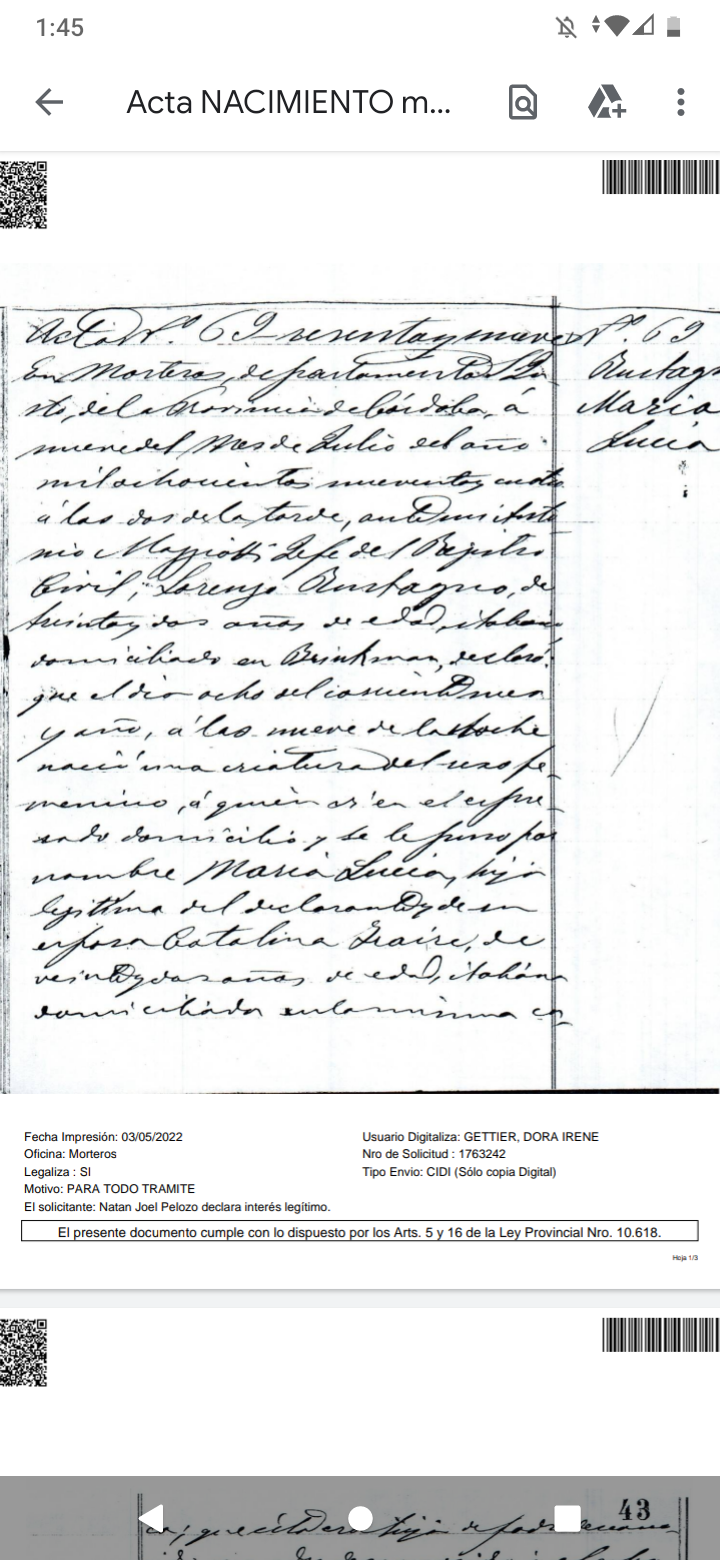 1:45
Acta NACIMIENTO m...
Acta Nº. 69 sesenta y nueve
Nº. 69
En Morteros, departamento Sn
Rustagn
sto, de la Provincia de Córdoba, á
Maria
nueve del Mes de Julio del año
Lucia
mil ochocientos noventa y cuatro
á las dos de la tarde, ante mi Anto
nio Mazziotti Jefe del Registro
Civil, Lorenzo Rustagno, de
treinta y dos años de edad, italiano
domiciliado en Brinkman, declaró:
que el dia ocho del corriente mes
y año, á las nueve de la Noche
nació una criatura del sexo fe-
menino, á quien en el espre-
sado domicilio y se le puso por
nombre Maria Lucia, hija
legitima del declarante y de su
esposa Catalina de
veinte y dos años de edad, italiana
domiciliada en la misma ca-
Fecha Impresión: 03/05/2022
Usuario Digitaliza: GETTIER, DORA IRENE
Oficina: Morteros
Nro de Solicitud : 1763242
Legaliza : SI
Tipo Envio: CIDI (Sólo copia Digital)
Motivo: PARA TODO TRAMITE
El solicitante: Natan Joel Pelozo declara interés legítimo.
El presente documento cumple con lo dispuesto por los Arts. 5 y 16 de la Ley Provincial Nro. 10.618.
Hoja 1/3
43
sa; que ésta era hija de